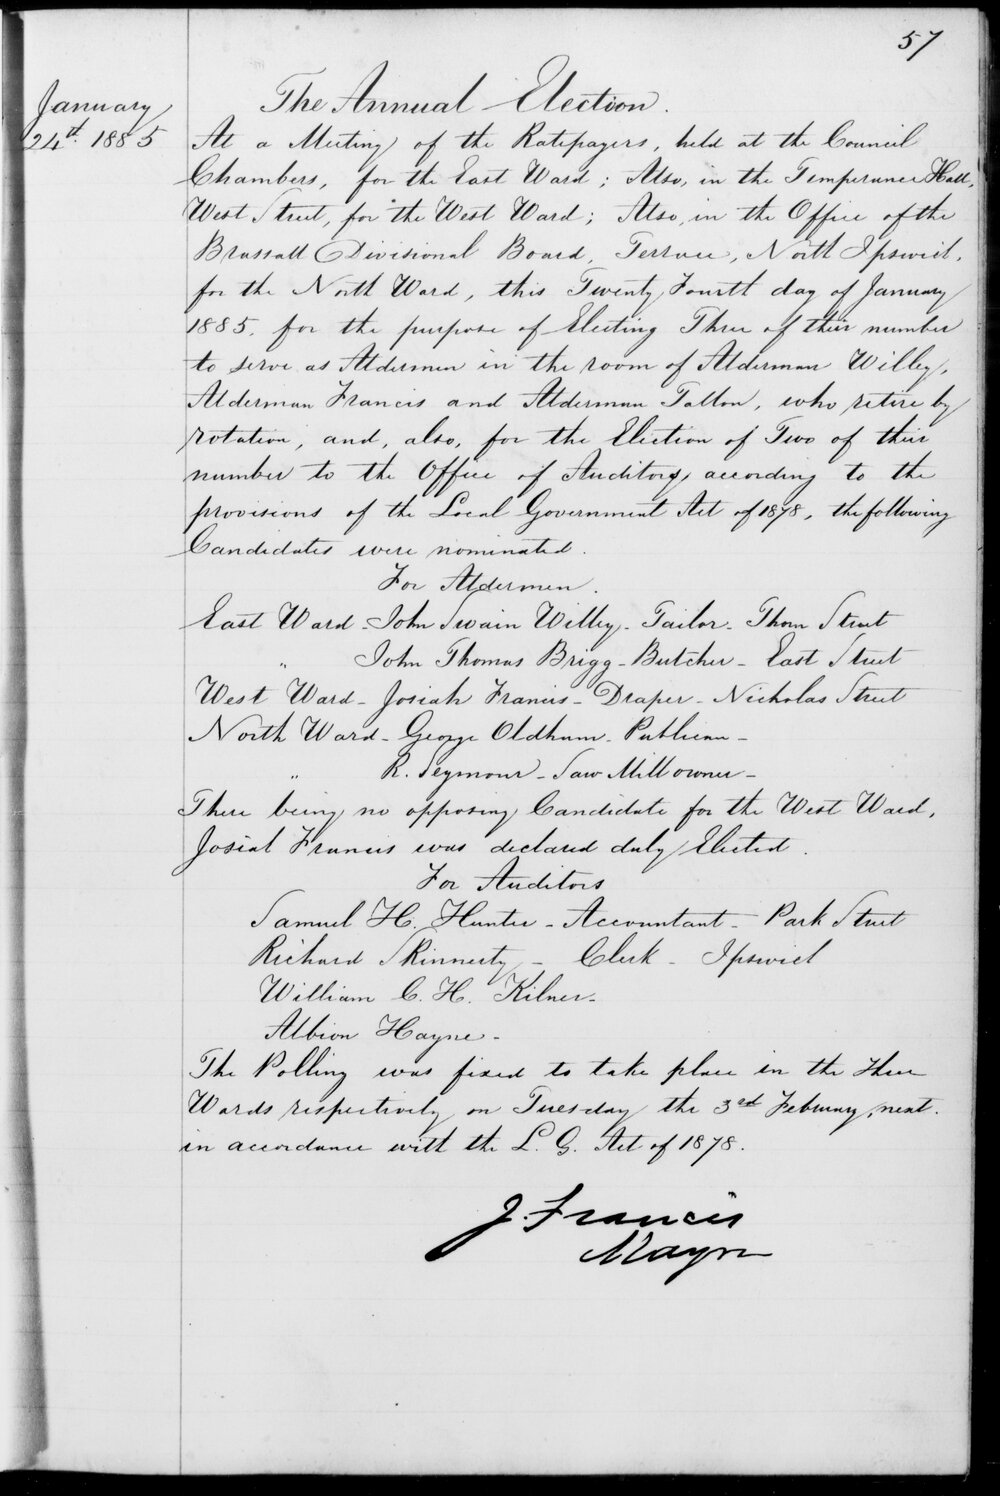 57
The Annual Election.
January
24th. 1885
At a Meeting of the Ratepayers, held at the Council
Chambers, for the East Ward; Also, in the Temperance Hall,
West Street, for the West Ward; Also, in the Office of the
Brassall Divisional Board, Terrace, North Ipswich,
for the North Ward, this Twenty Fourth day of January
1885. for the purpose of Electing Three of their number
to serve as Aldermen in the room of Alderman Willey,
Alderman Francis and Alderman Tatton, who retire by
rotation, and, also, for the Election of Two of their
number to the Office of Auditors, according to the
provisions of the Local Government Act of 1878, the following
Candidates were nominated.
For Aldermen.
East Ward - John Swain Willey - Tailor - Thorn Street
" John Thomas Brigg - Butcher - East Street
West Ward - Josiah Francis - Draper - Nicholas Street
North Ward - George Oldham - Publican -
" R. Seymour - Saw Mill owner -
There being no opposing Candidate for the West Ward,
Josiah Francis was declared duly Elected.
For Auditors
Samuel H. Hunter - Accountant - Park Street
Richard Skinnerty - Clerk - Ipswich
William C. H. Kilner -
Albion Hayne -
The Polling was fixed to take place in the three
Wards respectively on Tuesday the 3rd February, next.
in accordance with the L. G. Act of 1878.
J. Francis
Mayor